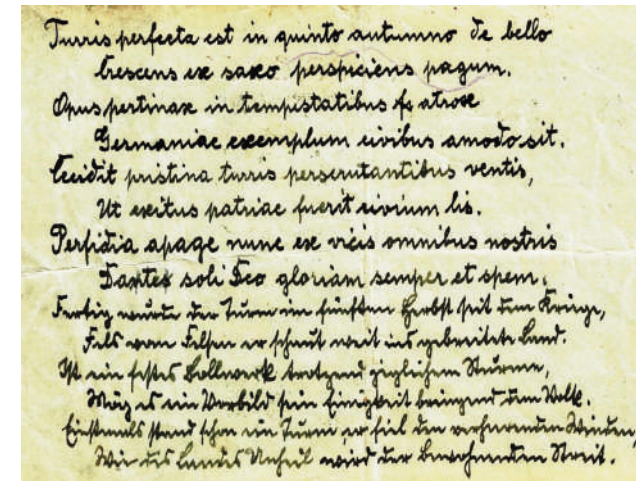 Turris perfecta est in quinto autumno de bello
Crescens ex saxo perspiciens pagum.
Opus pertinax in tempestatibus atrox
Germaniae exemplum civibus amodo sit.
Cecidit pristina turris perscrutantibus ventis,
Ut exitus patriae fuerit civium lis.
Perfidia apage nunc ex vicis omnibus nostris
Dantes soli Deo gloriam semper et spem.
Fertig wurde der Turm im fünften Herbst seit dem Kriege,
Fels vom Felsen er schaut weit ins gebreitete Land.
Ist ein festes Bollwerk trotzend jeglichem Sturme,
Mög es ein Vorbild sein Einigkeit bringend dem Volk.
Einstmals stand schon ein Turm, er fiel den Winden,
Wie des Landes Unheil wird der Bewohnenden Streit.